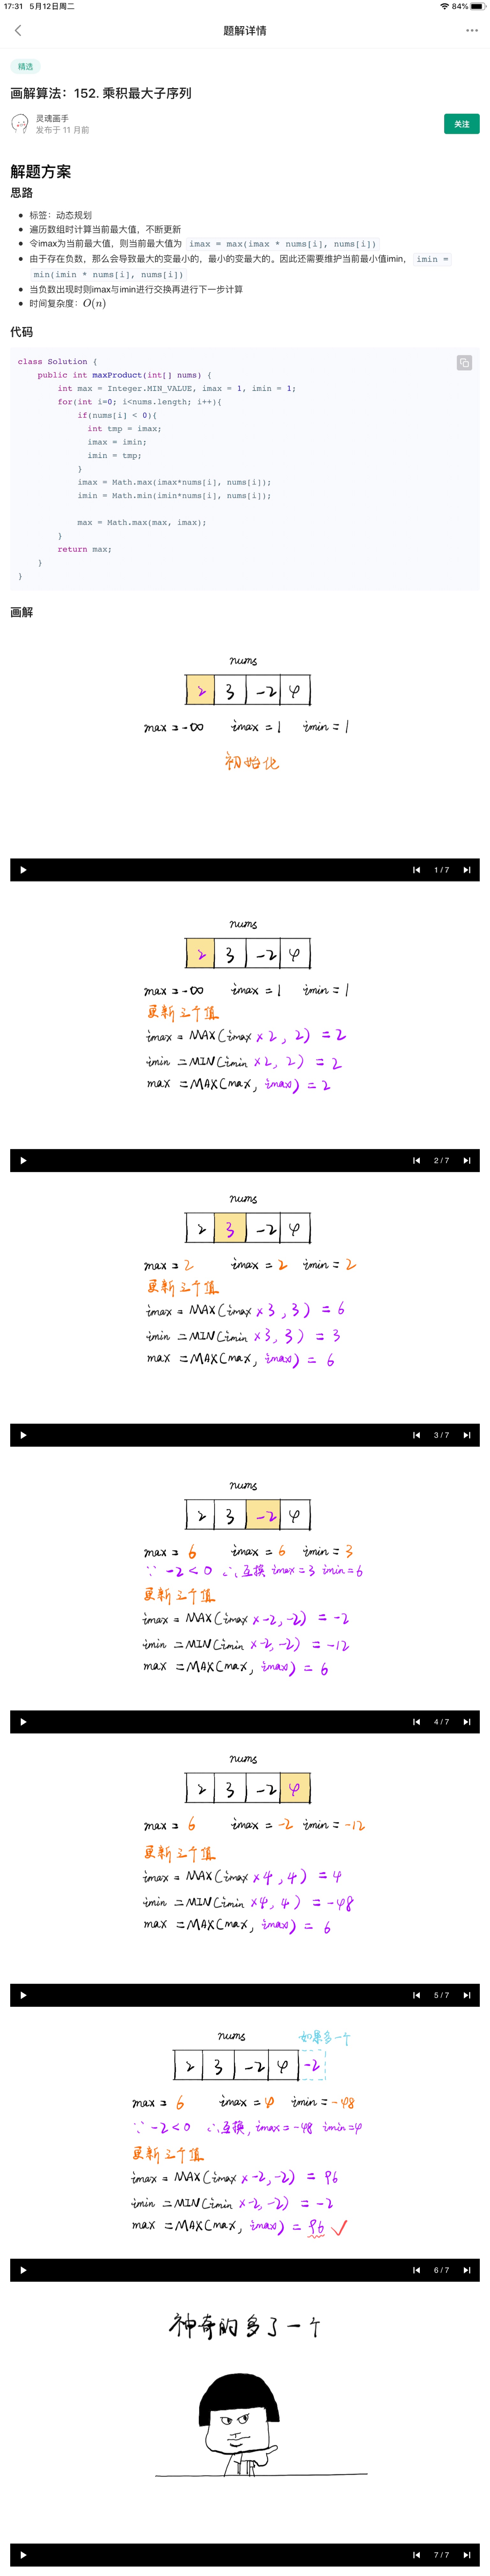 17:31 5月12日周二
84%
题解详情
精选
画解算法：152. 乘积最大子序列
灵魂画手
发布于 11 月前
关注
解题方案
思路
标签：动态规划
遍历数组时计算当前最大值，不断更新
令imax为当前最大值，则当前最大值为 imax = max(imax * nums[i], nums[i])
由于存在负数，那么会导致最大的变最小的，最小的变最大的。因此还需要维护当前最小值imin， imin =
min(imin * nums[i], nums[i])
当负数出现时则imax与imin进行交换再进行下一步计算
时间复杂度：O(n)
代码
class Solution {
public int maxProduct(int[] nums) {
int max = Integer.MIN_VALUE, imax = 1, imin = 1;
for(int i=0; i<nums.length; i++){
if(nums[i] < 0){
int tmp = imax;
imax = imin;
imin = tmp;
}
imax = Math.max(imax*nums[i], nums[i]);
imin = Math.min(imin*nums[i], nums[i]);
max = Math.max(max, imax);
}
return max;
}
}
画解
nums
2 3 -2 4
max = -∞ imax = 1 imin = 1
初始化
1 / 7
nums
2 3 -2 4
max = -∞ imax = 1 imin = 1
更新三个值
imax = MAX(imax × 2, 2) = 2
imin = MIN(imin × 2, 2) = 2
max = MAX(max, imax) = 2
2 / 7
nums
2 3 -2 4
max = 2 imax = 2 imin = 2
更新三个值
imax = MAX(imax × 3, 3) = 6
imin = MIN(imin × 3, 3) = 3
max = MAX(max, imax) = 6
3 / 7
nums
2 3 -2 4
max = 6 imax = 6 imin = 3
∵ -2 < 0 ∴ 互换 imax = 3 imin = 6
更新三个值
imax = MAX(imax × -2, -2) = -2
imin = MIN(imin × -2, -2) = -12
max = MAX(max, imax) = 6
4 / 7
nums
2 3 -2 4
max = 6 imax = -2 imin = -12
更新三个值
imax = MAX(imax × 4, 4) = 4
imin = MIN(imin × 4, 4) = -48
max = MAX(max, imax) = 6
5 / 7
nums 如果多一个
2 3 -2 4 -2
max = 6 imax = 4 imin = -48
∵ -2 < 0 ∴ 互换, imax = -48 imin = 4
更新三个值
imax = MAX(imax × -2, -2) = 96
imin = MIN(imin × -2, -2) = -2
max = MAX(max, imax) = 96 ✓
6 / 7
神奇的多了一个
7 / 7